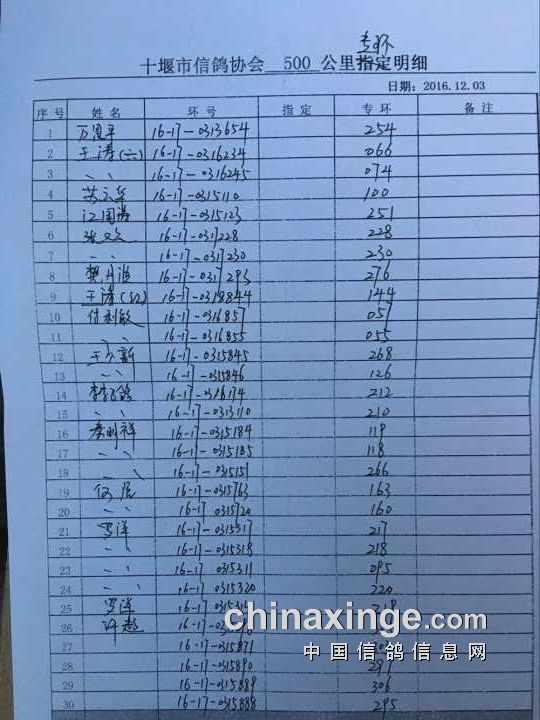 专环
十堰市信鸽协会 500 公里指定明细
日期：2016.12.03
序号 姓名 环号 指定 专环 备注
1 万恩平 16-17-0313654 254
2 王涛(六) 16-17-0316234 066
3 〃 16-17-0316245 074
4 16-17-0315110 100
5 江国涛 16-17-0315123 251
6 16-17-0317228 228
7 〃 16-17-0317230 230
8 16-17-0317293 276
9 王涛 16-17-0318844 144
10 付利敏 16-17-0316857 057
11 〃 16-17-0316855 055
12 王少新 16-17-0315845 268
13 〃 16-17-0315846 126
14 16-17-0316174 212
15 〃 16-17-0313110 210
16 秦明祥 16-17-0315184 119
17 〃 16-17-0315185 118
18 〃 16-17-0315151 266
19 何虎 16-17-0315763 163
20 〃 16-17-0315720 160
21 罗洋 16-17-0315317 217
22 〃 16-17-0315318 218
23 〃 16-17-0315311 095
24 〃 16-17-0315320 220
25 罗洋
26 许超
27 16-17-0315871
28 16-17-0315890 297
29 16-17-0315889 306
30 16-17-0315888 295
chinaxinge.com
中国信鸽信息网